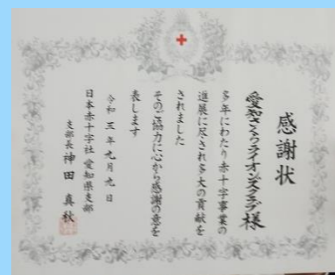 感謝状
愛知さくらライオンズクラブ様
多年にわたり赤十字事業の
進展に尽され多大の貢献を
されました
そのご協力に心から感謝の意を
表します
令和三年九月九日
日本赤十字社 愛知県支部
支部長 神田真秋